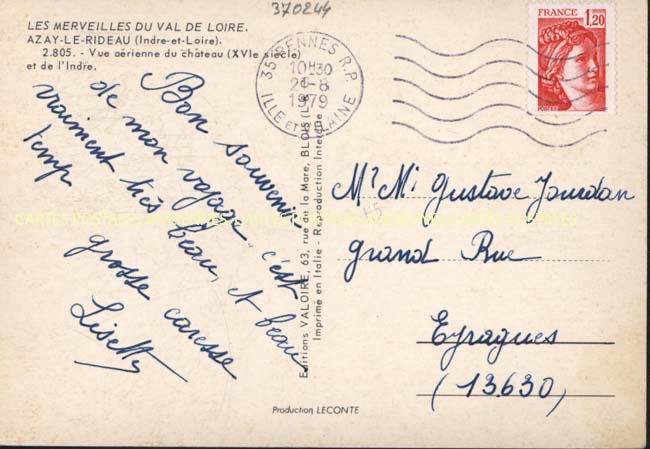 370244
LES MERVEILLES DU VAL DE LOIRE.
AZAY-LE-RIDEAU (Indre-et-Loire).
2.805. - Vue aérienne du château (XVIe siècle)
et de l'Indre.
35 RENNES R.P.
10H30
21-8
1979
ILLE ET VILAINE
FRANCE
1,20
POSTES
Bon souvenir
de mon voyage. c'est
vraiment très beau, et beau
temp
grosse caresse
Lisette
Editions VALOIRE, 63, rue de la Mare, BLOIS
Imprimé en Italie - Reproduction Interdite
Mr Mi Gustave Jourdan
Grand Rue
Eyragues
(13630)
Production LECONTE